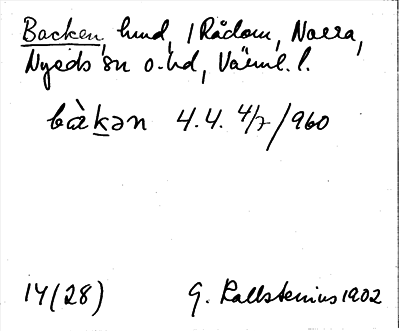 Backen, hmd, 1 Rådom, Norra,
Nyeds sn o. hd, Värml. l.
bàkən 4.4. 4/7/960
14(28) G. Kallstenius 1902